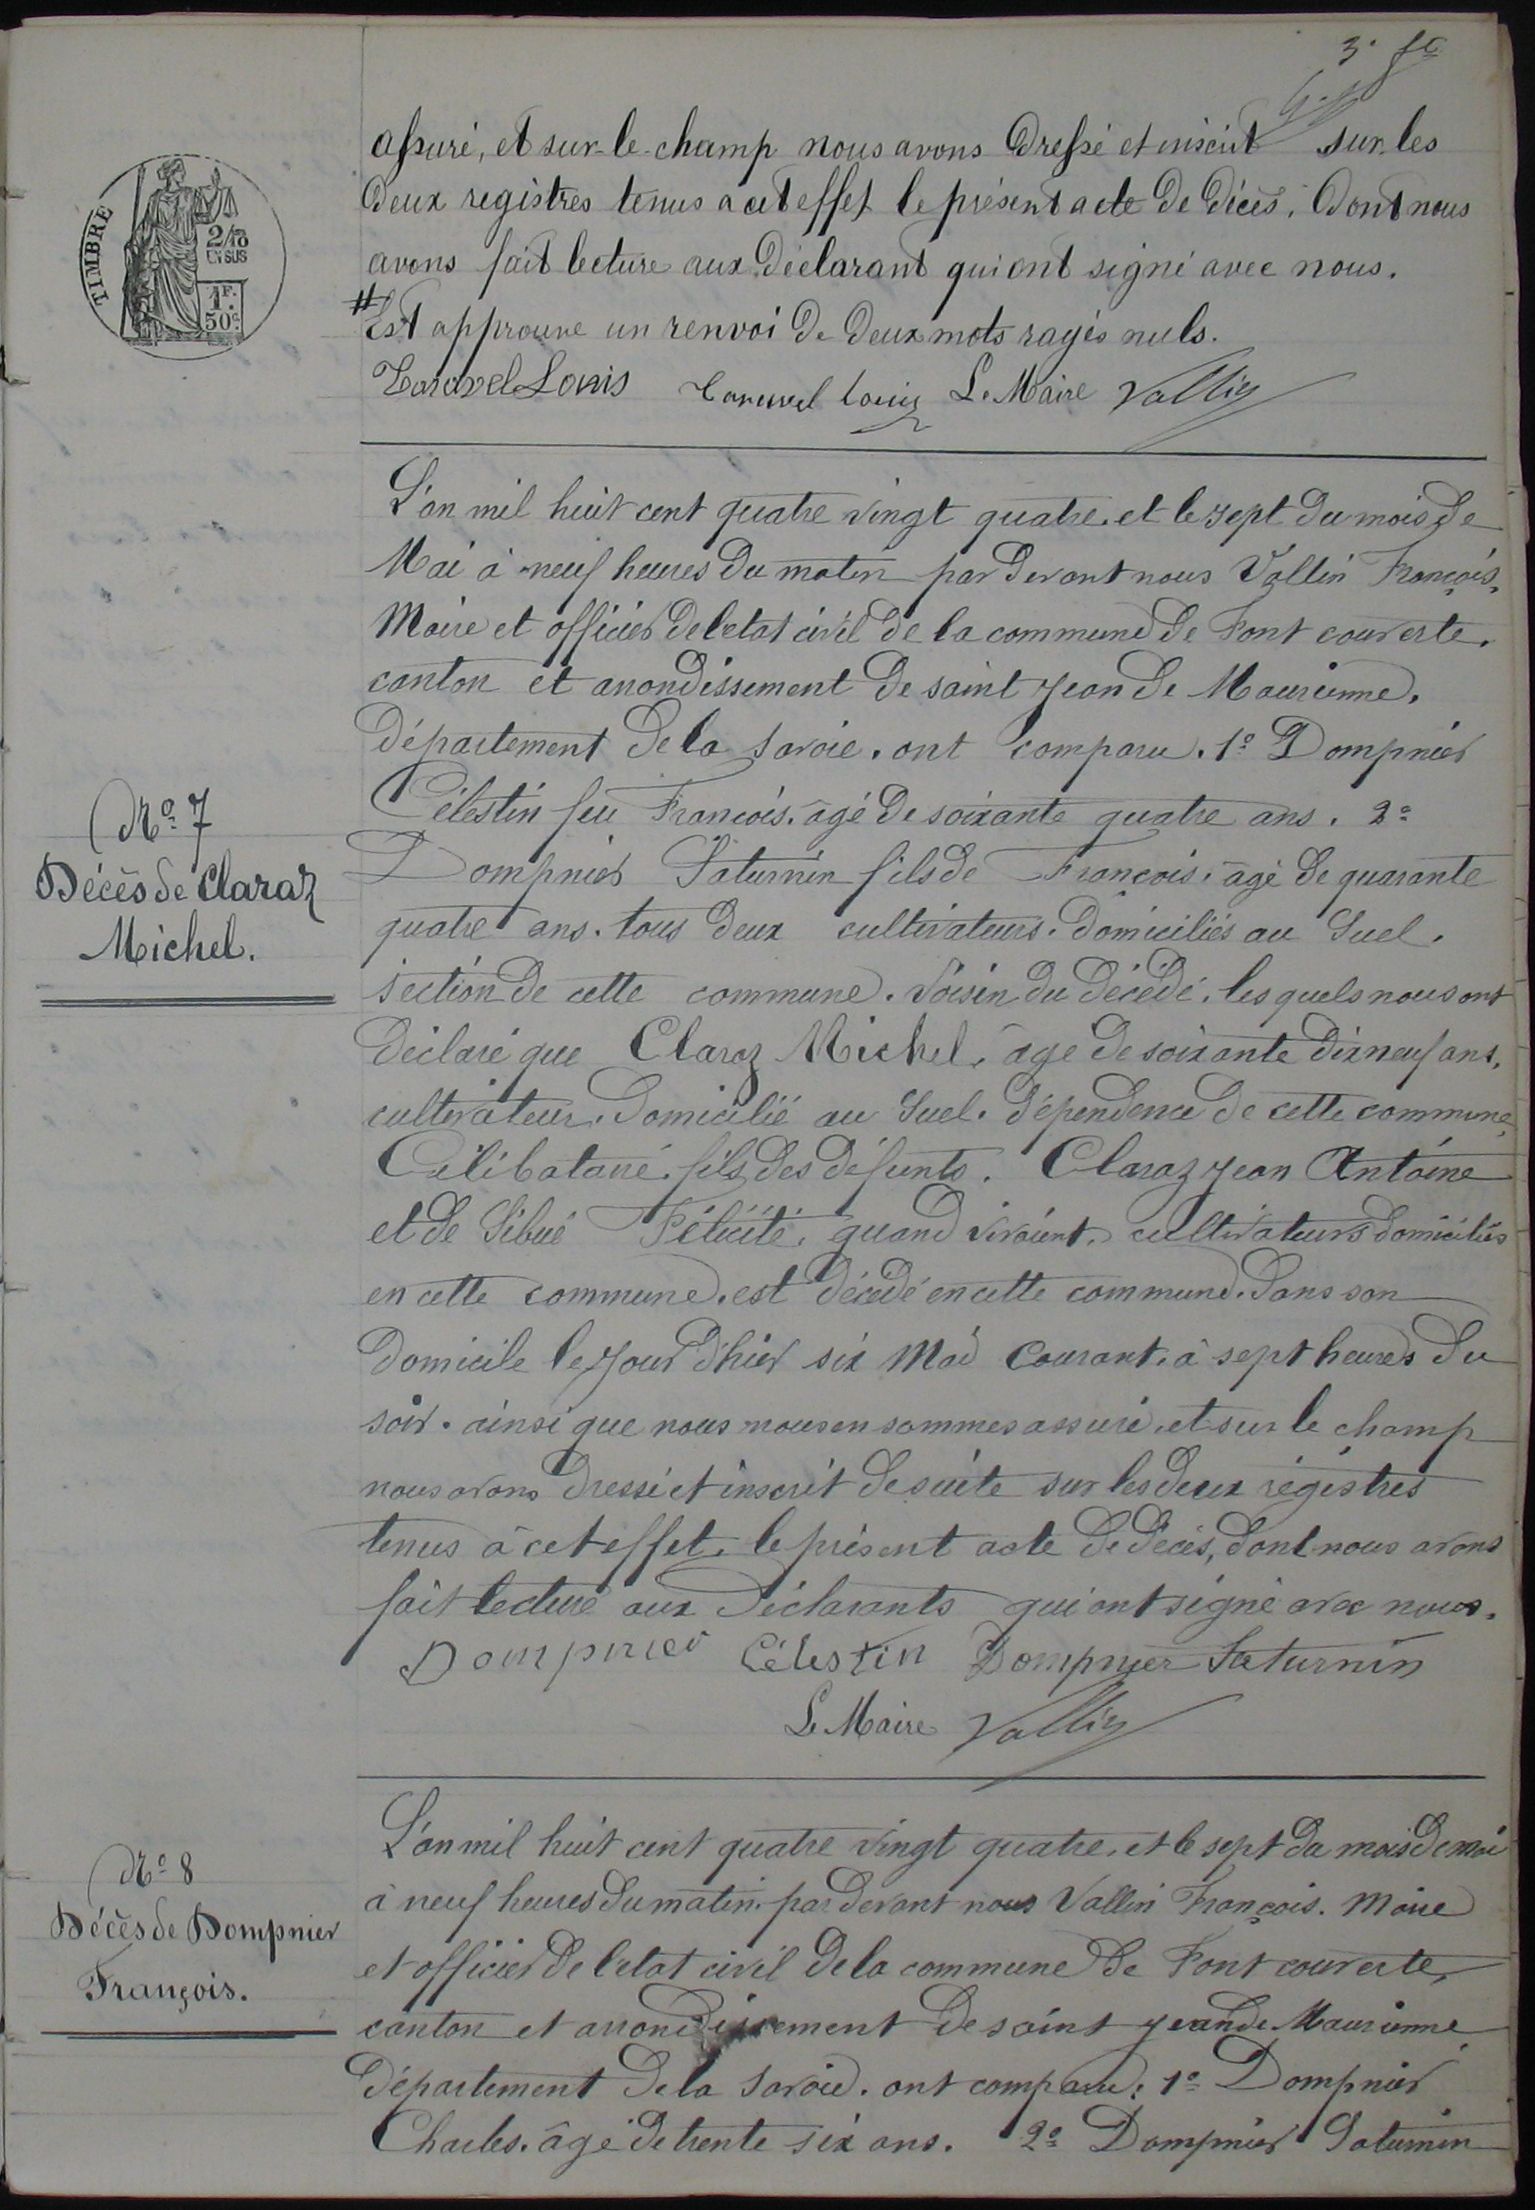 3. fo
assuré, et sur-le-champ nous avons dressé et inscrit sur les
deux registres tenus a cet effet le présent acte de décès. dont nous
avons fait lecture aux déclarant qui ont signé avec nous.
# Est approuve un renvoi de deux mots rayés nuls.
Taravel Louis Taravel Louis Le Maire Vallin
TIMBRE
2/10
EN SUS
1F.
50c.
L'an mil huit cent quatre vingt quatre. et le sept du mois de
Mai à neuf heures du matin par devant nous Vallin François.
Maire et officier de l'etat civil de la commune de Font couverte.
canton et arrondissement de saint Jean de Maurienne.
Département de la Savoie. ont comparu. 1º Dompnier
Célestin feu François. âgé de soixante quatre ans. 2º
Dompnier Saturnin fils de François. âgé de quarante
quatre ans. tous deux cultivateurs. domiciliés au Suel.
section de cette commune. voisin du décédé. les quels nous ont
déclaré que Claraz Michel. âge de soixante dix neuf ans.
cultivateur. domicilié au Suel. dépendence de cette commune
Célibataire. fils des défunts. Claraz Jean Antoine
et de Sibué Félicité. quand vivaient. cultivateurs domiciliés
en cette commune. est décédé en cette commune. dans son
domicile le jour d'hier six Mai courant. à sept heures du
soir. ainsi que nous nous en sommes assuré. et sur le champ
nous avons dressé et inscrit de suite sur les deux régistres
tenus à cet effet. le présent acte de décès, dont nous avons
fait lecture aux déclarants qui ont signé avec nous.
Dompnier Célestin Dompnier Saturnin
Le Maire Vallin
Nº 7
Décès de Claraz
Michel.
L'an mil huit cent quatre vingt quatre. et le sept du mois de mai
à neuf heures du matin. par devant nous Vallin François. Maire
et officier de l'etat civil de la commune de Font couverte,
canton et arrondissement de saint Jean de Maurienne
Département de la Savoie. ont comparu: 1º Dompnier
Charles. âgé de trente six ans. 2º Dompnier Saturnin
Nº 8
Décès de Dompnier
François.